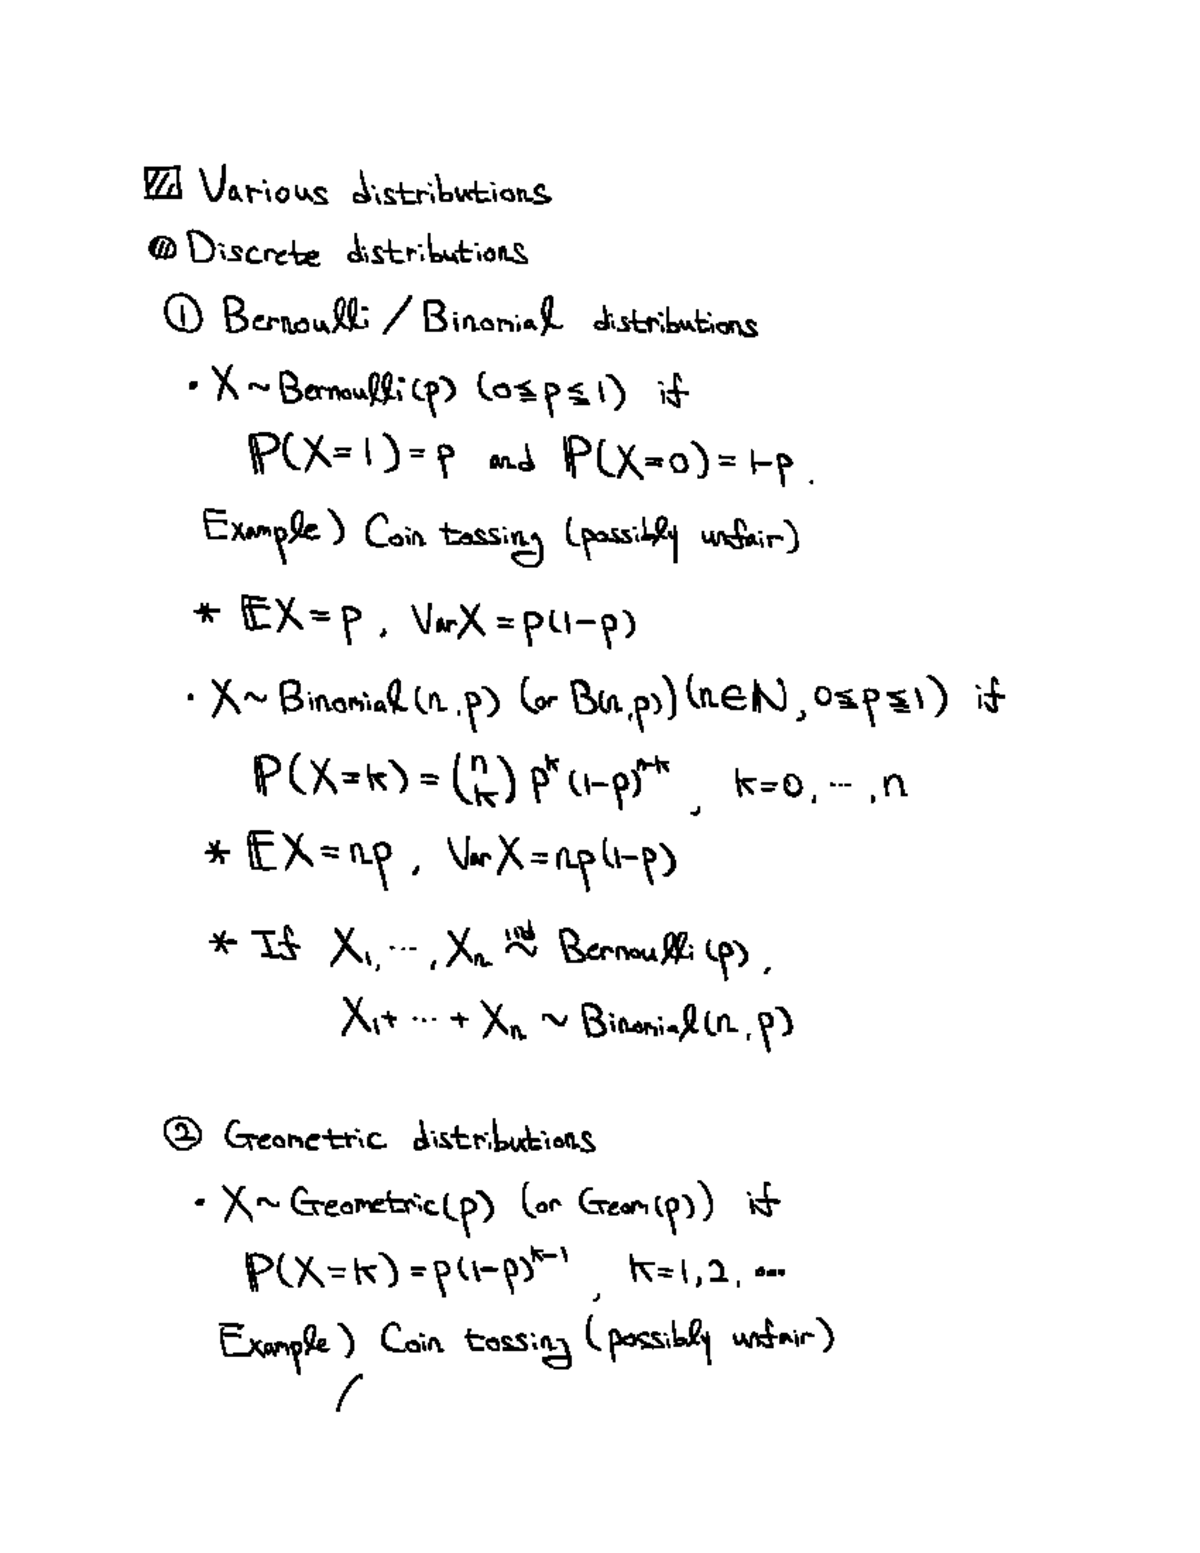 ▨ Various distributions
◍ Discrete distributions
① Bernoulli / Binomial distributions
· X ~ Bernoulli(p) (0≦p≦1) if
ℙ(X=1)=p and ℙ(X=0)=1-p.
Example) Coin tossing (possibly unfair)
* 𝔼X=p, VarX=p(1-p)
· X ~ Binomial(n,p) (or B(n,p)) (n∈ℕ, 0≦p≦1) if
ℙ(X=k)=(n k) p^k (1-p)^{n-k}, k=0, ⋯, n
* 𝔼X=np, VarX=np(1-p)
* If X₁, ⋯, Xₙ ind~ Bernoulli(p),
X₁+ ⋯ + Xₙ ~ Binomial(n,p)
② Geometric distributions
· X ~ Geometric(p) (or Geom(p)) if
ℙ(X=k)=p(1-p)^{k-1}, k=1,2, ⋯
Example) Coin tossing (possibly unfair)
(